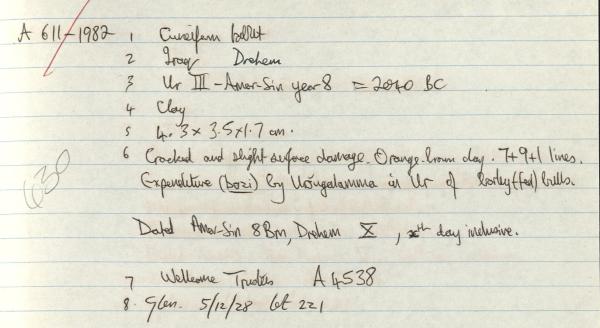 A 611-1982 1 Cuneiform tablet
2 Iraq Drehem
3 Ur III - Amar-Sin year 8 = 2040 BC
4 Clay
5 4.3 x 3.5 x 1.7 cm.
6 Cracked and slight surface damage. Orange-brown clay. 7+9+1 lines.
Expenditure (bazi) by in Ur of barley (fed) bulls.
630
Dated Amar-Sin 8 Drehem X, xth day inclusive.
7 Wellcome Trustees A4538
8. Glen. 5/12/28 lot 221